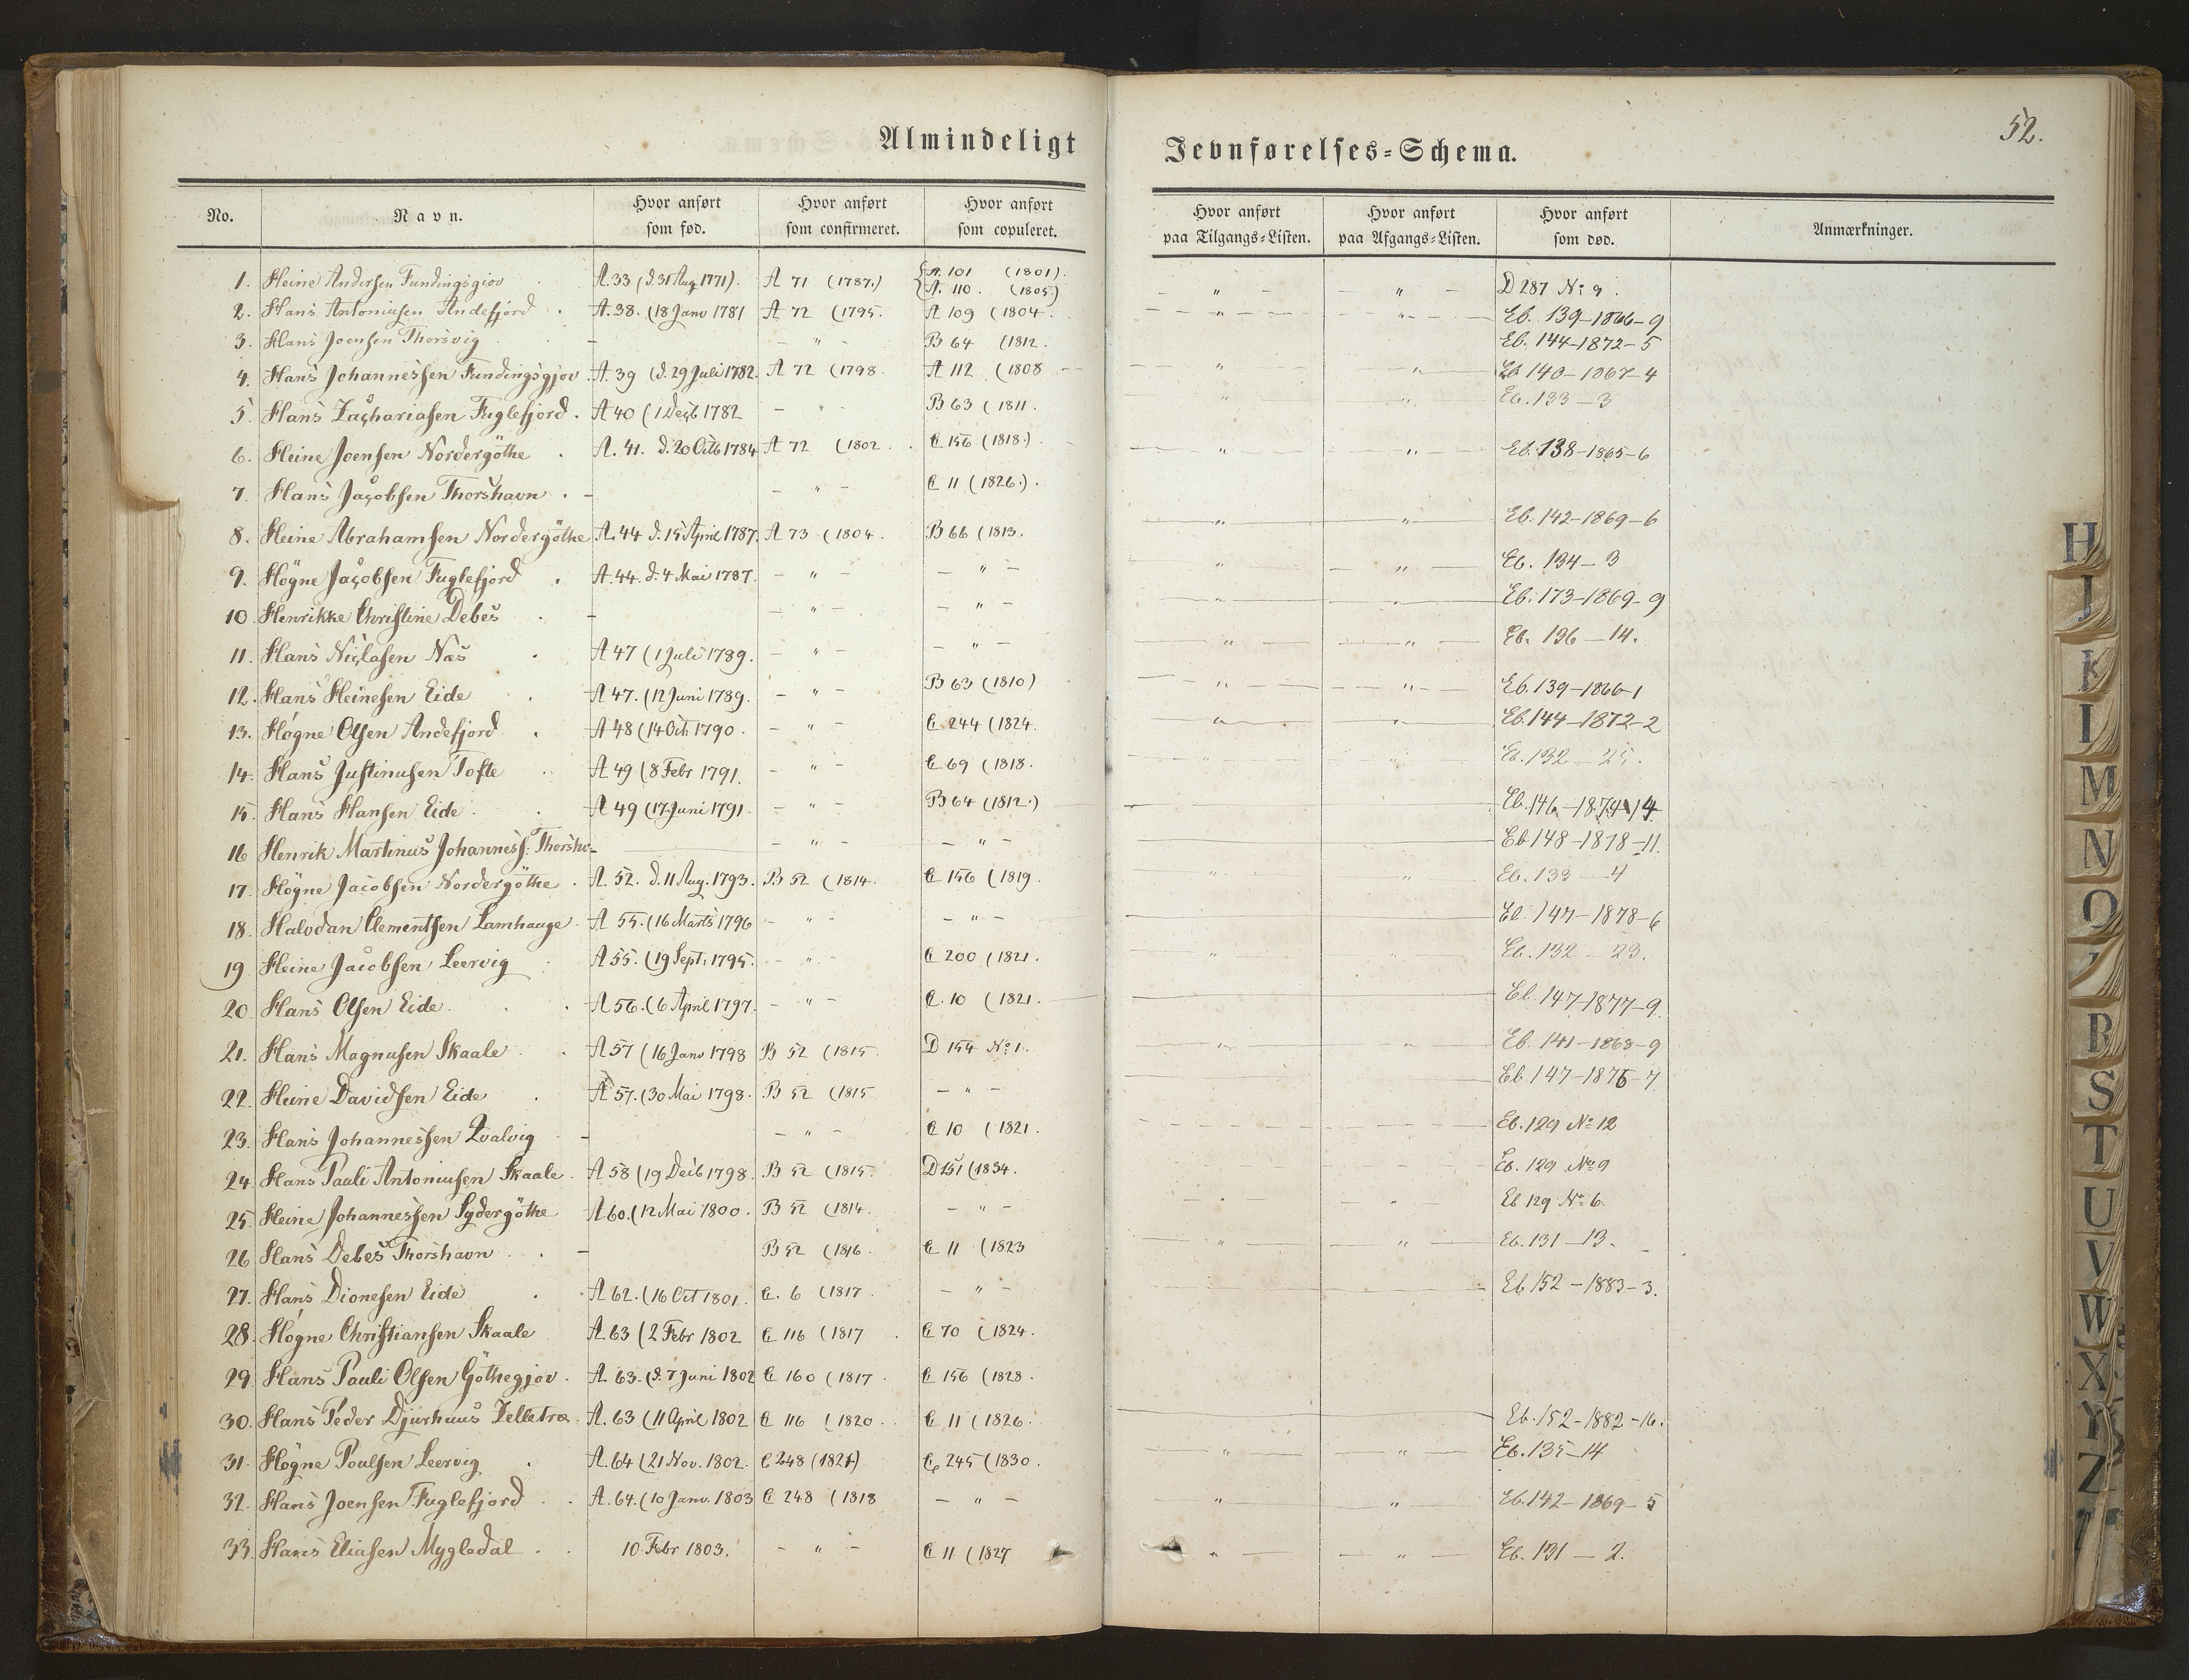 52.
Almindeligt Jevnførelses-Schema.
No. | Navn. | Hvor anført som fød. | Hvor anført som confirmeret. | Hvor anført som copuleret. | Hvor anført paa Tilgangs-Listen. | Hvor anført paa Afgangs-Listen. | Hvor anført som død. | Anmærkninger.
1. Heine Andersen Fundingsgiov A. 33 (d. 31 Aug 1771). A 71 (1787.) {A. 101 (1801). A. 110. (1805.) - " - - " - D 287 No 9.
2. Hans Antoniusen Andefjord A. 38. (18 Janv 1781 A 72 (1795. A 109 (1804. - " - - " - Eb. 139-1866-9
3. Hans Joensen Thorsvig - - " - B 64 (1812. Eb. 144-1872-5
4. Hans Johannessen Fundingsgjov A. 39 (d. 29 Juli 1782. A 72 (1798. A 112 (1808 - " - - " - Eb 140-1867-4
5. Hans Zachariasen Fuglefjord. A 40 (1 Decb 1782 - " - B 63 (1811. - " - - " - Eb. 133-3
6. Heine Joensen Nordergöthe A. 41. d. 20 Octb 1784 A 72 (1802. C 156 (1818.) - " - - " - Eb. 138-1865-6
7. Hans Jacobsen Thorshavn. - - " - C 11 (1826.).
8. Heine Abrahamsen Nordergöthe A. 44 d. 15 April 1787. A 73 (1804. B 66 (1813. - " - - " - Eb. 142-1869-6
9. Högne Jacobsen Fuglefjord A. 44. d. 4 Mai 1787. - " - - " - - " - - " - Eb. 134-3
10. Henrikke Christine Debes - - " - - " - - " - - " - Eb. 173-1869-9
11. Hans Niclasen Næs A 47 (1 Juli 1789. - " - - " - - " - - " - Eb. 136-14.
12. Hans Heinesen Eide A 47. (12 Juni 1789. - " - B 63 (1810) - " - - " - Eb. 139-1866-1
13. Høgne Olsen Andefjord A 48 (14 Oct. 1790. - " - C 244 (1824. - " - - " - Eb. 144-1872-2
14. Hans Justinusen Tofte A 49 (8 Febr 1791. - " - C 69 (1818. - " - - " - Eb. 132-25.
15. Hans Hansen Eide. A 49 (17 Juni 1791. - " - B 64 (1812.) Eb. 146-1874-14
16 Henrik Martinus Johanness: Thorshv- - " - - " - Eb 148-1878-11.
17. Högne Jacobsen Nordergöthe. A. 52. d. 11 Aug. 1793. B 52 (1814. C 156 (1819. - " - - " - Eb. 133-4
18. Halvdan Clementsen Lamhauge. A 55. (16 Marts 1796 - " - - " - Eb. 147-1878-6
19. Heine Jacobsen Leervig A 55. (19 Sept. 1795. - " - C 200 (1821. - " - - " - Eb. 132-23.
20. Hans Olsen Eide. A 56. (6 April 1797. - " - C. 10 (1821. Eb. 147-1877-9.
21. Hans Magnusen Skaale A 57 (16 Janv 1798 B 52 (1815. D 154 No 1. - " - - " - Eb. 141-1868-9
22. Heine Davidsen Eide A 57. (30 Mai 1798. B 52 (1815 - " - Eb 147-1876-7.
23. Hans Johannessen Qvalvig - - " - C 10 (1821. Eb. 129 No 12
24. Hans Pauli Antoniusen Skaale. A 58 (19 Decb 1798. B 52 (1815. D 151 (1834. Eb. 129 No 9
25. Heine Johannessen Sydergöthe A 60. (12 Mai 1800. B 52 (1814. - " - - " - - " - Eb 129 No 6.
26 Hans Debes Thorshavn. - B 52 (1816. C 11 (1823 - " - - " - Eb. 131-13.
27. Hans Dionesen Eide A 62. (16 Oct 1801. C. 6 (1817. - " - Eb 152-1883-3.
28. Høgne Christiansen Skaale A. 63 (2 Febr 1802 C 116 (1817. C 70 (1824.
29. Hans Pauli Olsen Göthegjov. A. 63. (d. 7 Juni 1802 C 160 (1817. C 156 (1828.
30. Hans Peder Djurhuus Zelletræ. A. 63 (11 April 1802 C 116 (1820. C 11 (1826. Eb. 152-1882-16.
31. Högne Poulsen Leervig A. 64 (21 Nov. 1802. C 248 (1821) C. 245 (1830. - " - - " - Eb. 135-14
32. Hans Joensen Fuglefjord A. 64. (10 Janv. 1803 C 248 (1818 - " - - " - - " - Eb. 142-1869-5
33. Hans Eliasen Mygledal 10 Febr 1803. - " - C 11 (1827 - " - - " - Eb. 131-2.
H
J
K
L
M
N
O
R
S
T
U
V
W
X
Y
Z